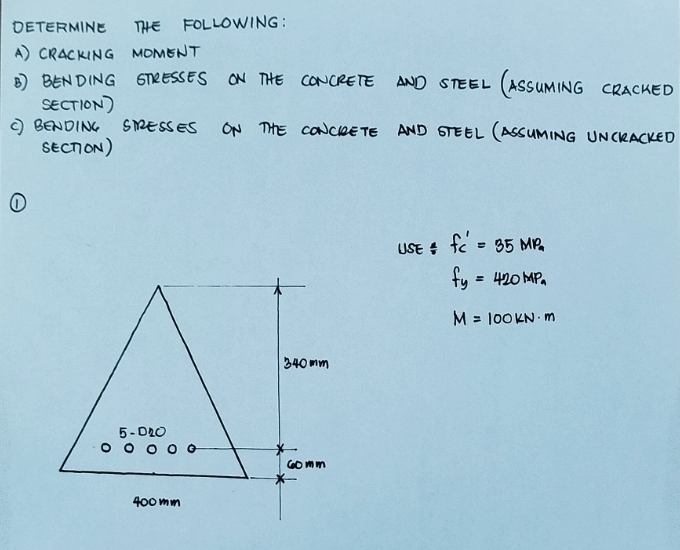 DETERMINE THE FOLLOWING:
A) CRACKING MOMENT
B) BENDING STRESSES ON THE CONCRETE AND STEEL (ASSUMING CRACKED
SECTION)
C) BENDING STRESSES ON THE CONCRETE AND STEEL (ASSUMING UNCRACKED
SECTION)
①
USE : fc' = 35 MPa
fy = 420 MPa
M = 100 KN·m
340 mm
5-D20
60 mm
400 mm